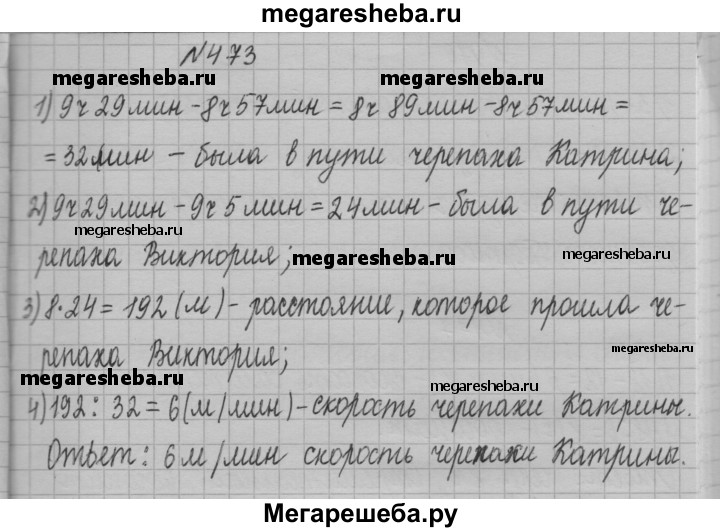 megaresheba.ru
№473
megaresheba.ru megaresheba.ru
1) 9ч 29мин - 8ч 57мин = 8ч 89мин - 8ч 57мин =
= 32мин - была в пути черепаха Катрина;
2) 9ч 29мин - 9ч 5мин = 24мин - была в пути че-
megaresheba.ru
репаха Виктория;
megaresheba.ru
megaresheba.ru
3) 8·24 = 192 (м) - расстояние, которое прошла че-
репаха Виктория;
megaresheba.ru
megaresheba.ru
megaresheba.ru
4) 192 : 32 = 6 (м/мин) - скорость черепахи Катрины.
Ответ: 6 м/мин скорость черепахи Катрины.
Мегарешеба.ру